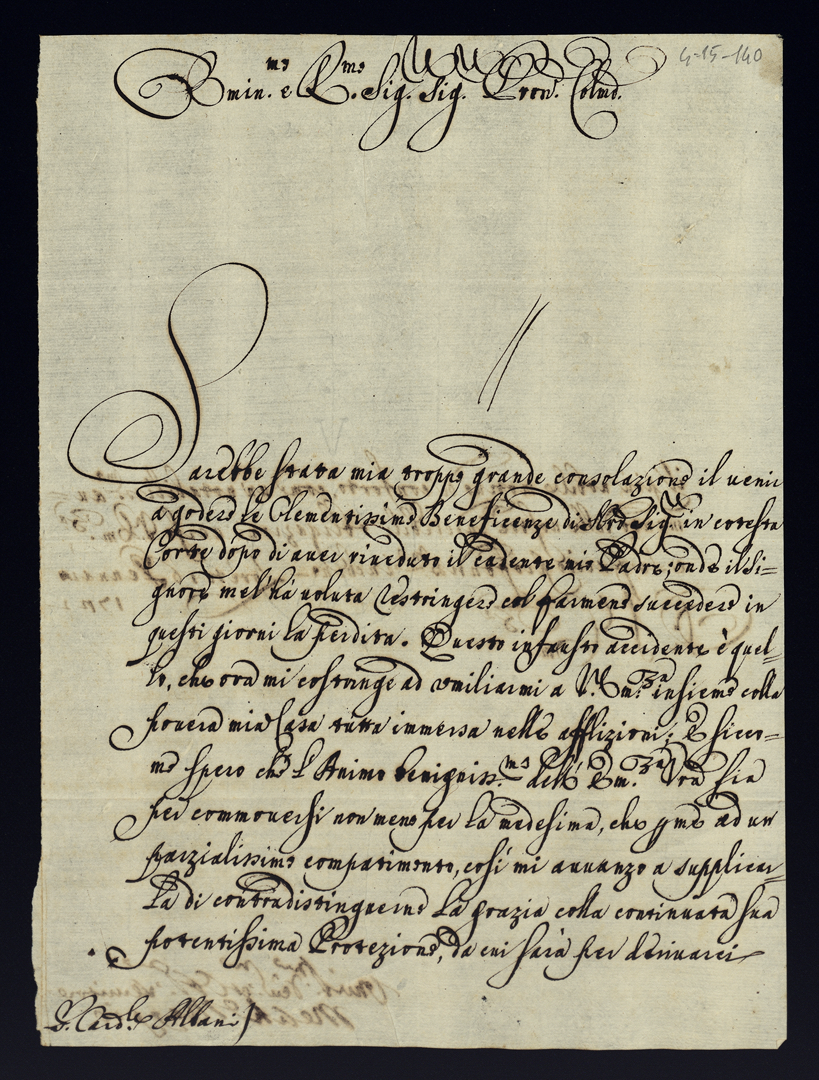 4-15-140
Emin.mo e R.mo Sig. Sig. Pron. Colmo.
Sarebbe stata mia troppo grande consolazione il venir
a godere le Clementissime Beneficenze di Sig. in cotesta
Corte dopo di aver riveduto il cadente mio Padre; onde il Si=
gnore me l'hà voluta restringere col farmene succedere in
questi giorni la perdita. Questo infausto accidente è quel=
lo, che ora mi costringe ad umiliarmi a V. Em.za insieme colla
povera mia Casa tutta immersa nelle afflizioni; E sicco=
me spero che l'Animo benigniss.mo dell' Em.za Vra sia
per commoversi non meno per la medesima, che p me ad un
parzialissimo compatimento, così mi avvanzo a supplicar=
la di contradistinguerne la grazia colla continuata sua
potentissima Protezione, da cui sarà per derivarci
S. Card.le Albani